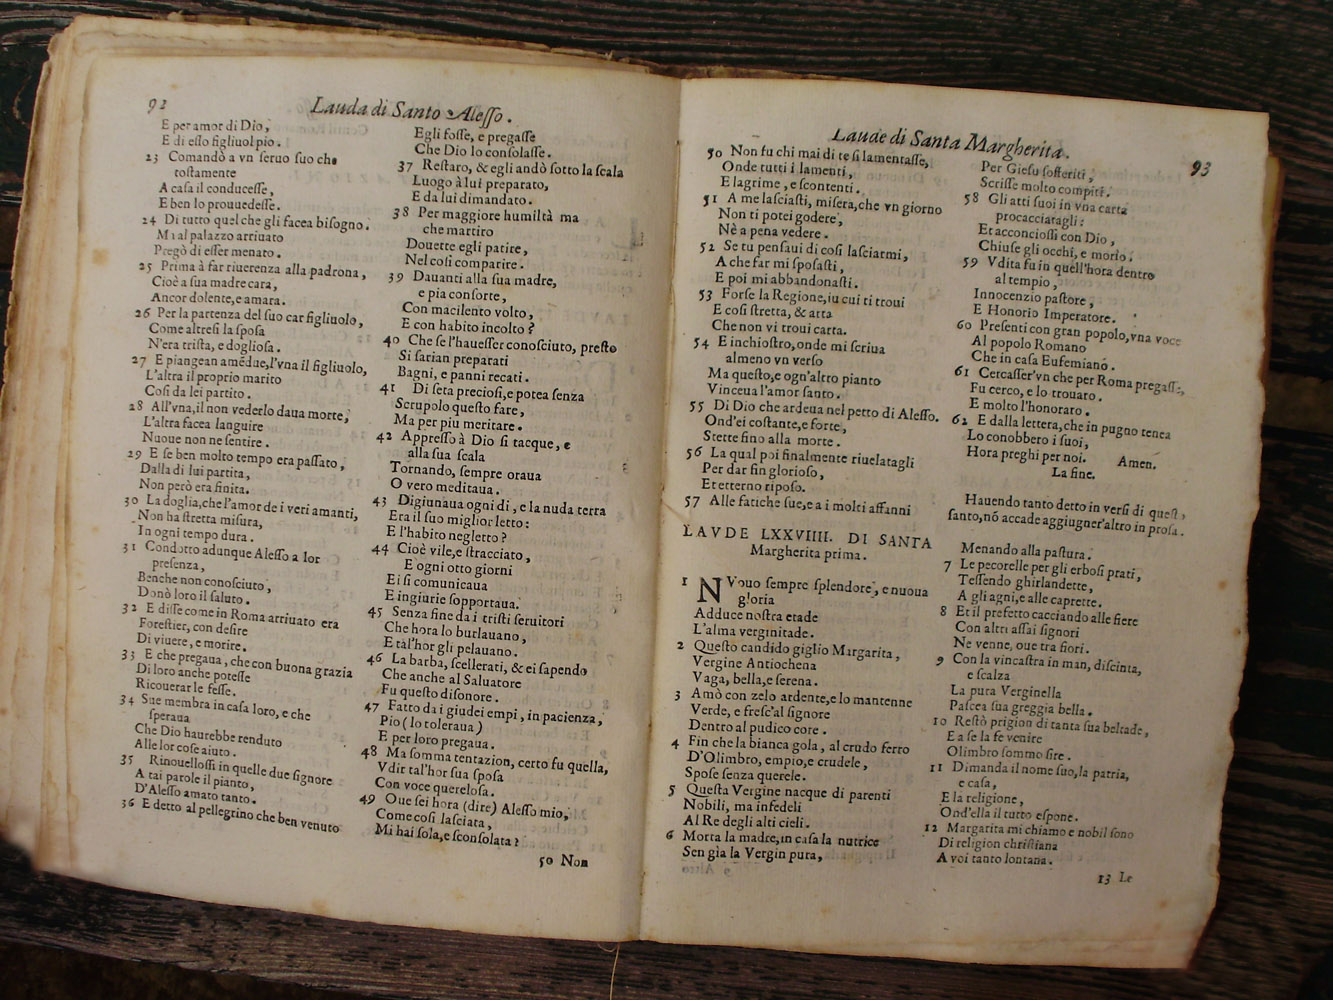 92
Lauda di Santo Alesso.
E per amor di Dio,
E di esso figliuol pio.
23 Comandò a vn seruo suo che
tostamente
A casa il conducesse,
E ben lo prouuedesse.
24 Di tutto quel che gli facea bisogno.
Mi al palazzo arriuato
Pregò di esser menato.
25 Prima à far riuerenza alla padrona,
Cioè a sua madre cara,
Ancor dolente, e amara.
26 Per la partenza del suo car figliuolo,
Come altresi la sposa
N'era trista, e dogliosa.
27 E piangean amẽdue, l'vna il figliuolo,
L'altra il proprio marito
Cosi da lei partito.
28 All'vna, il non vederlo daua morte,
L'altra facea languire
Nuoue non ne sentire.
29 E se ben molto tempo era passato,
Dalla di lui partita,
Non però era finita.
30 La doglia, che l'amor de i veri amanti,
Non ha stretta misura,
In ogni tempo dura.
31 Condotto adunque Alesso a lor
presenza,
Benche non conosciuto,
Donò loro il saluto.
32 E disse come in Roma arriuato era
Forestier, con desire
Di viuere, e morire.
33 E che pregaua, che con buona grazia
Di loro anche potesse
Ricouerar le fesse.
34 Sue membra in casa loro, e che
speraua
Che Dio haurebbe renduto
Alle lor cose aiuto.
35 Rinouellossi in quelle due signore
A tai parole il pianto,
D'Alesso amato tanto.
36 E detto al pellegrino che ben venuto
Egli fosse, e pregasse
Che Dio lo consolasse.
37 Restaro, & egli andò sotto la scala
Luogo à lui preparato,
E da lui dimandato.
38 Per maggiore humiltà ma
che martiro
Douette egli patire,
Nel così comparire.
39 Dauanti alla sua madre,
e pia consorte,
Con macilento volto,
E con habito incolto?
40 Che se l'hauesser conosciuto, presto
Si sarian preparati
Bagni, e panni recati.
41 Di seta preciosi, e potea senza
Scrupolo questo fare,
Ma per piu meritare.
42 Appresso à Dio si tacque, e
alla sua scala
Tornando, sempre oraua
O vero meditaua.
43 Digiunaua ogni dì, e la nuda terra
Era il suo miglior letto:
E l'habito neglecto?
44 Cioè vile, e stracciato,
E ogni otto giorni
Ei si comunicaua
E ingiurie sopportaua.
45 Senza fine da i tristi seruitori
Che hora lo burlauano,
E tàl'hor gli pelauano.
46 La barba, scellerati, & ei sapendo
Che anche al Saluatore
Fu questo disonore.
47 Fatto da i giudei empi, in pacienza,
Pio (lo toleraua)
E per loro pregaua.
48 Ma somma tentazion, certo fu quella,
Vdir tal'hor sua sposa
Con voce querelosa.
49 Oue sei hora (dire) Alesso mio,
Come così lasciata,
Mi hai sola, e sconsolata?
50 Non
Laude di Santa Margherita.
93
50 Non fu chi mai di te si lamentasse,
Onde tutti i lamenti,
E lagrime, e scontenti.
51 A me lasciasti, misera, che vn giorno
Non ti potei godere,
Nè a pena vedere.
52 Se tu pensaui di così lasciarmi,
A che far mi sposasti,
E poi mi abbandonasti.
53 Forse la Regione, iu cui ti troui
E così stretta, & arta
Che non vi troui carta.
54 E inchiostro, onde mi scriua
almeno vn verso
Ma questo, e ogn'altro pianto
Vinceua l'amor santo.
55 Di Dio che ardeua nel petto di Alesso.
Ond'ei costante, e forte,
Stette fino alla morte.
56 La qual poi finalmente riuelatagli
Per dar fin glorioso,
Et eterno riposo.
57 Alle fatiche sue, e a i molti affanni
Per Giesu sofferiti,
Scrisse molto compiti.
58 Gli atti suoi in vna carta
procacciatagli:
Et acconciossi con Dio,
Chiuse gli occhi, e morio.
59 Vdita fu in quell'hora dentro
al tempio,
Innocenzio pastore,
E Honorio Imperatore.
60 Presenti con gran popolo, vna voce
Al popolo Romano
Che in casa Eufemiano.
61 Cercasser'vn che per Roma pregasse,
Fu cerco, e lo trouaro.
E molto l'honoraro.
62 E dalla lettera, che in pugno tenea
Lo conobbero i suoi,
Hora preghi per noi. Amen.
La fine.
Hauendo tanto detto in versi di quest,
santo, nõ accade aggiugner'altro in prosa.
LAVDE LXXVIIII. DI SANTA
Margherita prima.
1 NVouo sempre splendore, e nuoua
gloria
Adduce nostra etade
L'alma verginitade.
2 Questo candido giglio Margarita,
Vergine Antiochena
Vaga, bella, e serena.
3 Amò con zelo ardente, e lo mantenne
Verde, e fresc'al signore
Dentro al pudico core.
4 Fin che la bianca gola, al crudo ferro
D'Olimbro, empio, e crudele,
Spose senza querele.
5 Questa Vergine nacque di parenti
Nobili, ma infedeli
Al Re degli alti cieli.
6 Morta la madre, in casa la nutrice
Sen gìa la Vergin pura,
Menando alla pastura.
7 Le pecorelle per gli erbosi prati,
Tessendo ghirlandette,
A gli agni, e alle caprette.
8 Et il prefetto cacciando alle fiere
Con altri assai signori
Ne venne, oue tra fiori.
9 Con la vincastra in man, discinta,
e scalza
La pura Verginella
Pascea sua greggia bella.
10 Restò prigion di tanta sua beltade,
E a se la fe venire
Olimbro sommo sire.
11 Dimanda il nome suo, la patria,
e casa,
E la religione,
Ond'ella il tutto espone.
12 Margarita mi chiamo e nobil sono
Di religion christiana
A voi tanto lontana.
13 Le